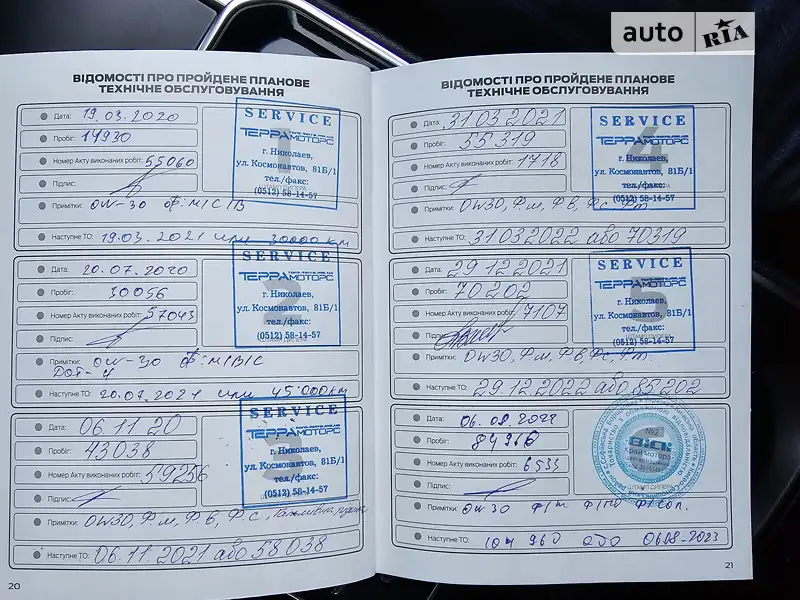 auto RIA
ВІДОМОСТІ ПРО ПРОЙДЕНЕ ПЛАНОВЕ
ТЕХНІЧНЕ ОБСЛУГОВУВАННЯ
Дата: 19.03.2020
Пробіг: 14930
Номер Акту виконаних робіт: 55060
Підпис:
Примітки: OW-30 Ф:М|С|В
Наступне ТО: 19.03.2021 или 30000 км
SERVICE
ТЕРРАМОТОРС
г. Николаев,
ул. Космонавтов, 81Б/1
тел./факс:
(0512) 58-14-57
Дата: 20.07.2020
Пробіг: 30056
Номер Акту виконаних робіт: 57043
Підпис:
Примітки: OW-30 Ф:М|В|С
DOT-4
Наступне ТО: 20.07.2021 или 45000км
SERVICE
ТЕРРАМОТОРС
г. Николаев,
ул. Космонавтов, 81Б/1
тел./факс:
(0512) 58-14-57
Дата: 06 11 20
Пробіг: 43038
Номер Акту виконаних робіт: 59256
Підпис:
Примітки: OW30, Ф.м, Ф.в, Ф.с,
Наступне ТО: 06.11.2021 або 58 038
SERVICE
ТЕРРАМОТОРС
г. Николаев,
ул. Космонавтов, 81Б/1
тел./факс:
(0512) 58-14-57
20
ВІДОМОСТІ ПРО ПРОЙДЕНЕ ПЛАНОВЕ
ТЕХНІЧНЕ ОБСЛУГОВУВАННЯ
Дата: 31.03.2021
Пробіг: 55319
Номер Акту виконаних робіт: 1718
Підпис:
Примітки: OW30, Ф.м, Ф.в, Ф.с, Ф.т.
Наступне ТО: 31 03 2022 або 70319
SERVICE
4
ТЕРРАМОТОРС
г. Николаев,
ул. Космонавтов, 81Б/1
тел./факс:
(0512) 58-14-57
Дата: 29 12 2021
Пробіг: 70 202
Номер Акту виконаних робіт: 7107
Підпис:
Примітки: OW30, Ф.м, Ф.в, Ф.с, Ф.т.
Наступне ТО: 29.12.2022 або 85 202
SERVICE
5
ТЕРРАМОТОРС
г. Николаев,
ул. Космонавтов, 81Б/1
тел./факс:
(0512) 58-14-57
Дата: 06.08.2022
Пробіг:
Номер Акту виконаних робіт: 6533
Підпис:
ШТАМП ДИЛЕРА
Примітки: OW 30 Ф/м Ф/по Ф/сол.
Наступне ТО: 104 960 або 0608.2023
21